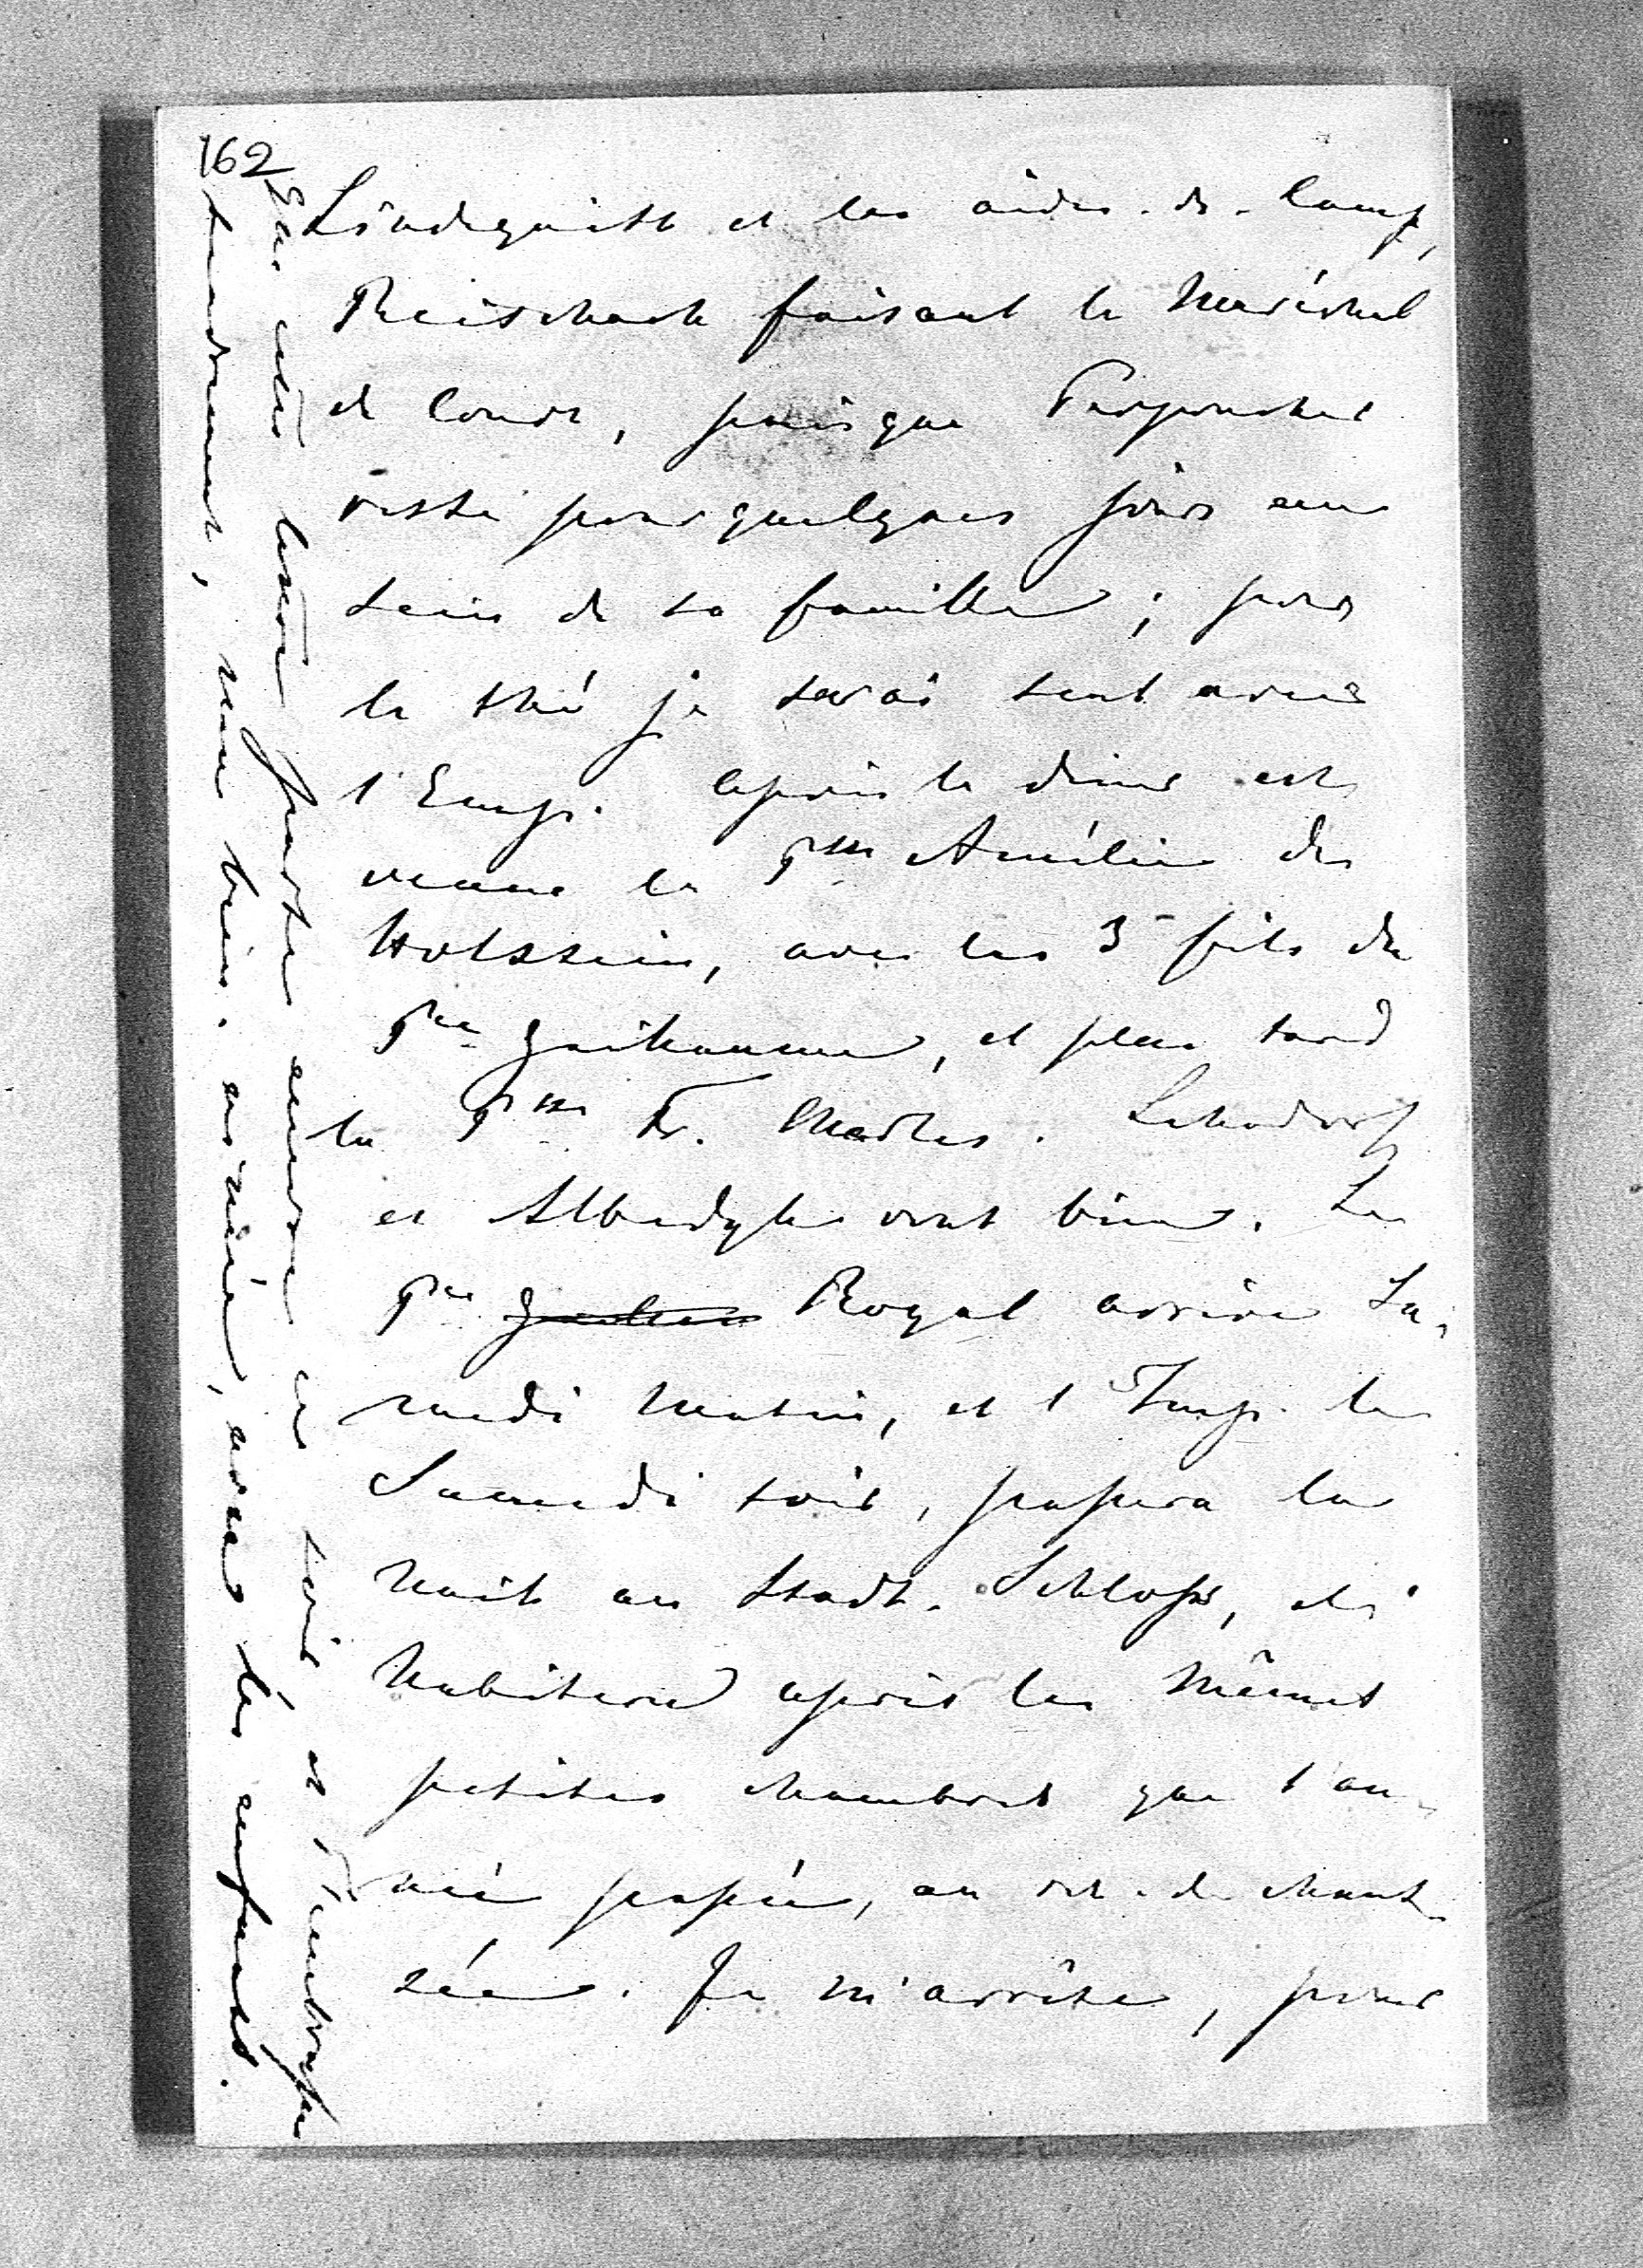 162
Lindequist et les aides-de-Camp,
Reischach faisant le Maréchal
de Cour, puisque Perponcher
reste pour quelques jours au
sein de sa famille ; pour
le thé je serai seul avec
l'Emp. Après le diner est
venue la Psse Amélie de
Holstein, avec les 3 fils du
Pce Guillaume, et plus tard
la Psse Fr. Charles. Lehndorff
et Albedyll vont bien. Le
Pce Royal arrive Sa-
medi matin, et l'Imp. le
Samedi soir, passera la
nuit au Stadt-Schloss, et
habitera après les mêmes
petites chambres que l'an-
née passée, au rez-de-chaus-
sée. Je m'arrête, pour
que cette lettre parte encore ce soir et t'embrasse
tendrement, mon bien-aimée, avec les enfants.